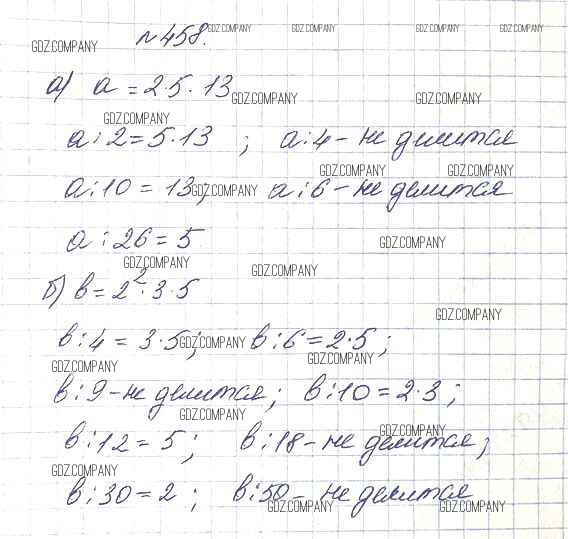 GDZ.COMPANY GDZ.COMPANY GDZ.COMPANY GDZ.COMPANY
№458.
GDZ.COMPANY
а) a = 2·5·13
GDZ.COMPANY GDZ.COMPANY
GDZ.COMPANY
a:2=5·13 ; a:4 - не делится
GDZ.COMPANY GDZ.COMPANY
a:10 = 13; GDZ.COMPANY a:6 - не делится
a:26 = 5 GDZ.COMPANY
GDZ.COMPANY GDZ.COMPANY
б) b = 2²·3·5
GDZ.COMPANY
b:4 = 3·5; GDZ.COMPANY b:6 = 2·5 ;
GDZ.COMPANY GDZ.COMPANY
b:9 - не делится; b:10 = 2·3 ;
GDZ.COMPANY
GDZ.COMPANY
b:12 = 5 ; b:18 - не делится;
GDZ.COMPANY
b:30 = 2 ; b:50 - не делится
GDZ.COMPANY GDZ.COMPANY